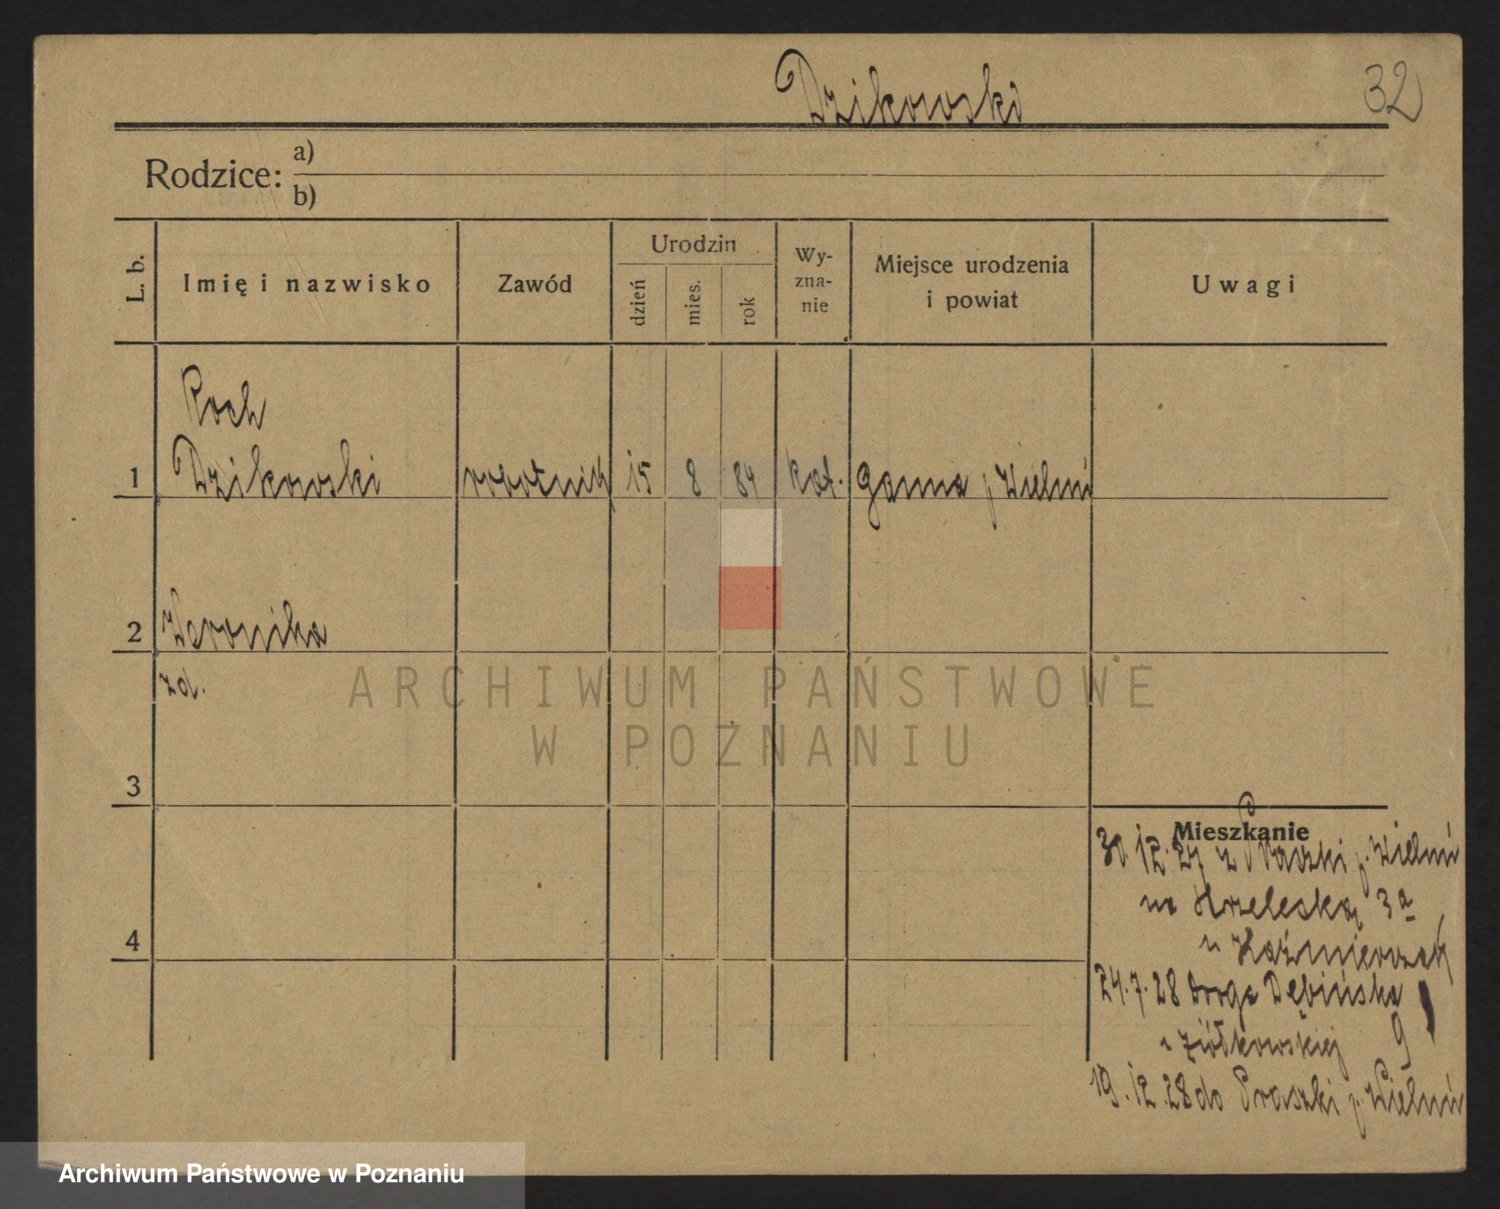 Dzikowski
32
Rodzice: a)
b)
L. b. Imię i nazwisko Zawód Urodzin dzień mies. rok Wyznanie Miejsce urodzenia i powiat Uwagi
Roch
1 Dzikowski robotnik 15 8 84 kat. Ganna p Wieluń
2 Weronika
zd.
ARCHIWUM PAŃSTWOWE
W POZNANIU
3
Mieszkanie
30.12.27 z Praszki p. Wieluń
na Strzelecką 3a
u Kaźmierczak
4
24.7.28 Droga Dębińska 9
u Ziółkowskiej
19.12.28 do Praszki p. Wieluń
Archiwum Państwowe w Poznaniu